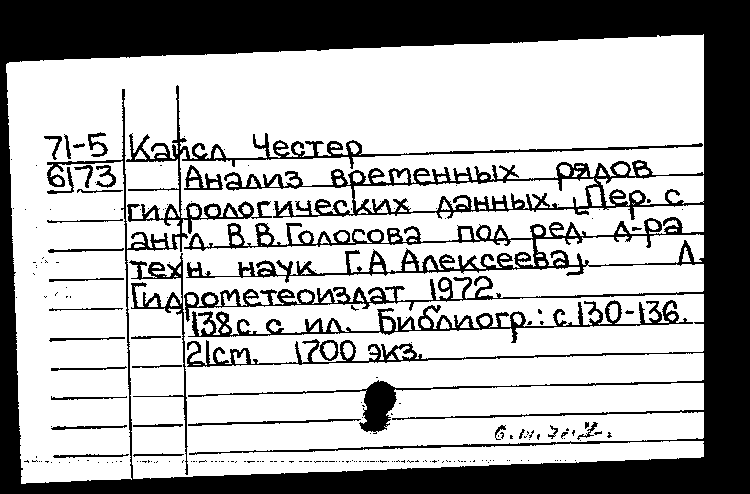 71-5 Кайсл, Честер
6173 Анализ временных рядов
гидрологических данных. [Пер. с
англ. В.В.Голосова под ред. д-ра
техн. наук Г.А.Алексеева]. Л.
Гидрометеоиздат, 1972.
138с. с ил. Библиогр.: с.130-136.
21см. 1700 экз.